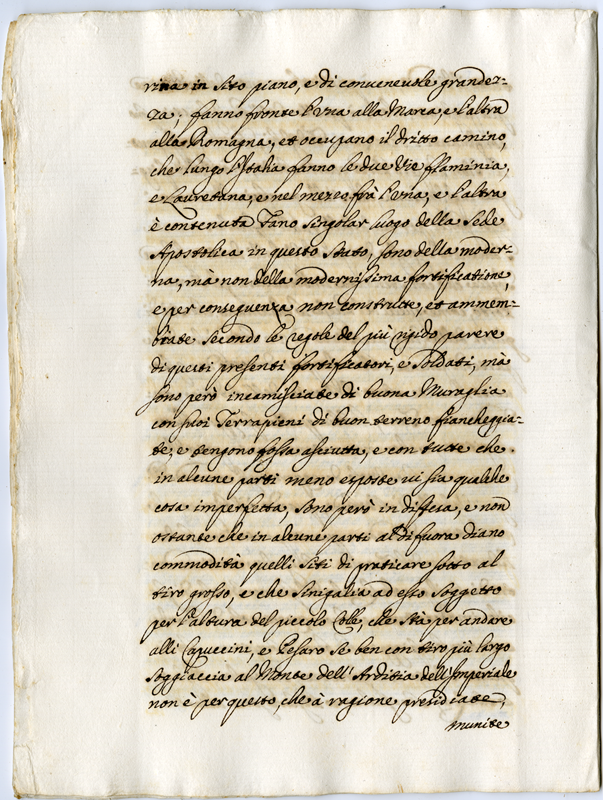 rina in sito piano, e di conveneuole grandez-
za; fanno fronte l'vna alla Marca, e l'altra
alla Romagna, et occupano il dritto camino,
che lungo l'Italia fanno le due Vie flaminia,
e Lauretana, e nel mezzo frà l'vna, e l'altra
è contenuta Fano singolar luogo della Sede
Apostolica in questo stato, sono della moder-
na, mà non della modernissima fortificatione,
e per conseguenza non constructe, et ammem-
brate secondo le regole del più rigido parere
di questi presenti fortificatori, e Soldati, mà
sono però incamisciate di buona Muraglia
con suoi Terrapieni di buon terreno fiancheggia-
te, e tengono fossa asciutta, e con tutte che
in alcune parti meno esposte ui sia qualche
cosa imperfecta, sono però in diffesa, e non
ostante che in alcune parti al di fuora diano
commodità quelli siti di praticare sotto al
tiro grosso, e che Sinigalia ad esso soggetto
per l'altura del piccolo Colle, che stà per andare
alli Capuccini, e Pesaro se ben con tiro più largo
soggiaccia al Monte dell'Arditia dell'Imperiale
non è per questo, che à ragione presidiate,
munite